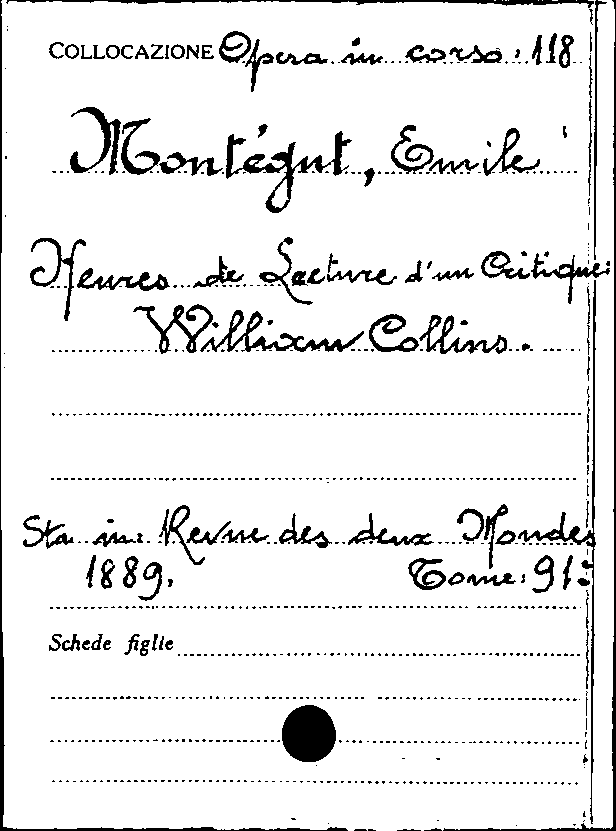 COLLOCAZIONE Opera in corso: 118
Montégut, Emile
Heures de Lecture d'un Critique:
William Collins.
Sta in: Revue des deux Mondes
1889. Tome: 91:
Schede figlie